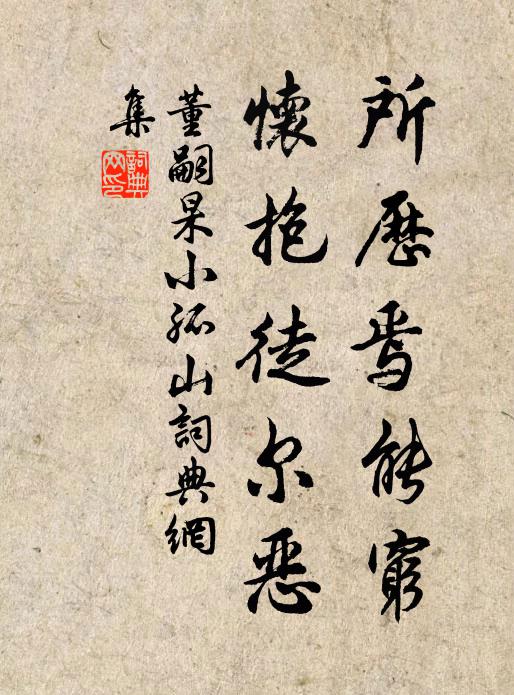 所歷焉能窮
懷抱徒尔惡
董嗣杲小孤山詞典網
集
詞典網印